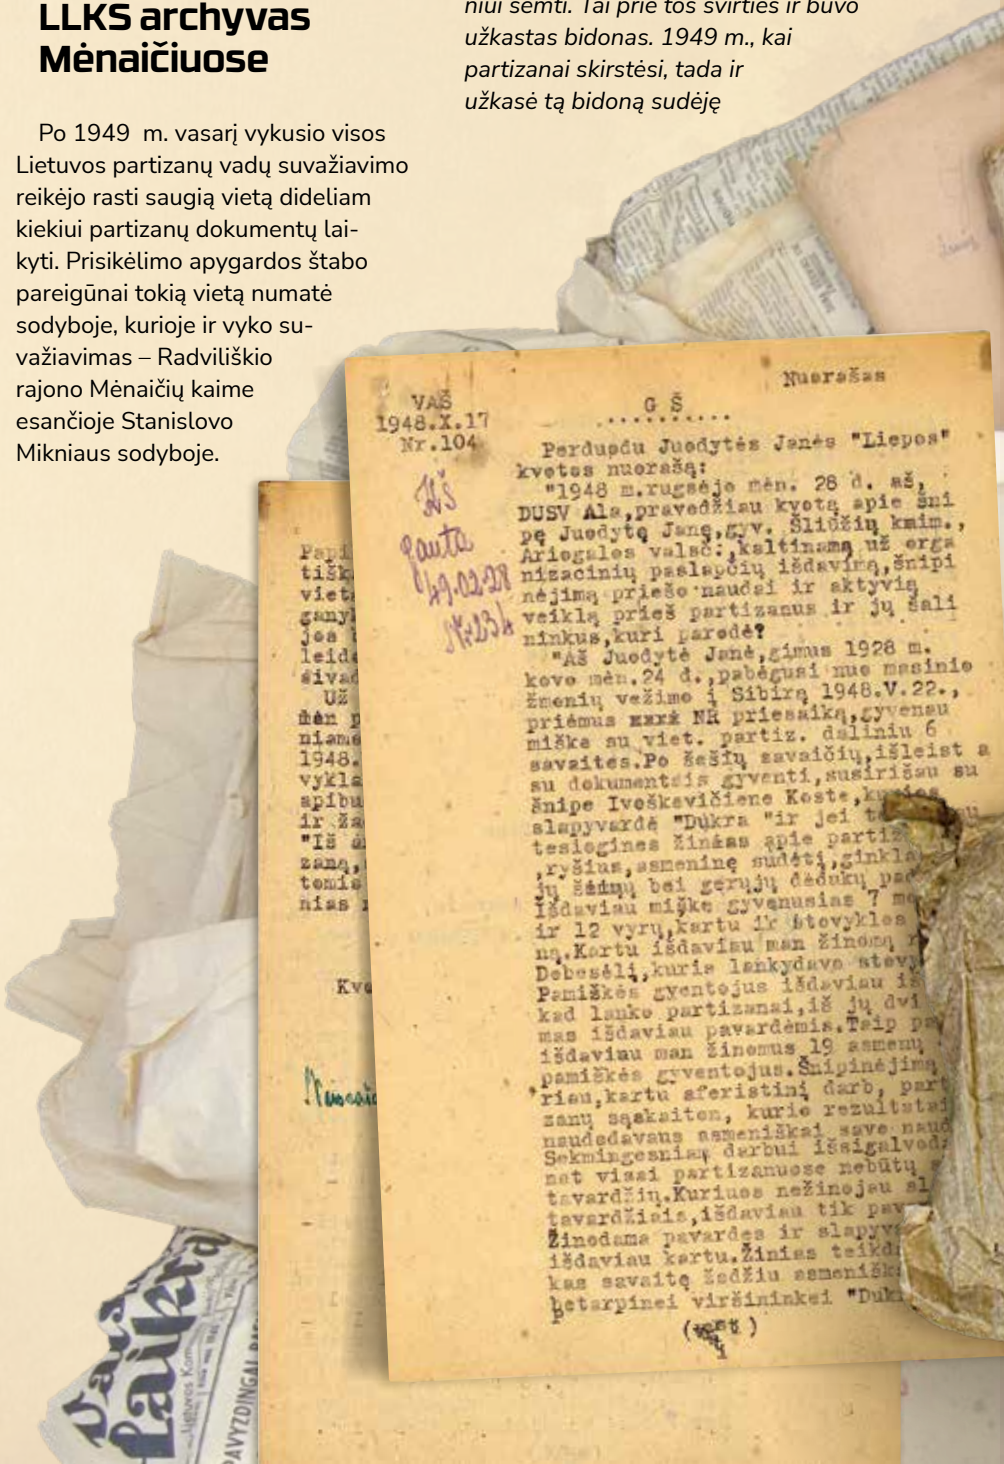 LLKS archyvas
Mėnaičiuose
Po 1949 m. vasarį vykusio visos
Lietuvos partizanų vadų suvažiavimo
reikėjo rasti saugią vietą dideliam
kiekiui partizanų dokumentų lai-
kyti. Prisikėlimo apygardos štabo
pareigūnai tokią vietą numatė
sodyboje, kurioje ir vyko su-
važiavimas – Radviliškio
rajono Mėnaičių kaime
esančioje Stanislovo
Mikniaus sodyboje.
niui semti. Tai prie tos svirties ir buvo
užkastas bidonas. 1949 m., kai
partizanai skirstėsi, tada ir
užkasė tą bidoną sudėję
Nuorašas
VAŠ
1948.X.17
Nr.104
G Š
HŠ
gauta
49.02.28
Nr 234
Perduodu Juodytės Janės "Liepos"
kvotos nuorašą:
"1948 m.rugsėjo mėn. 28 d. aš,
DUSV Ala,pravedžiau kvotą apie šni
pę Juodytę Janę,gyv. Šlidžių kaim.,
Ariogalos valsč.,kaltinamą už orga
nizacinių paslapčių išdavimą,šnipi
nėjimą priešo naudai ir aktyvią
veiklą prieš partizanus ir jų šali
ninkus,kuri parodė:
"Aš Juodytė Janė,gimus 1928 m.
kovo mėn.24 d.,pabėgusi nuo masinio
žmonių vežimo į Sibirą 1948.V.22.,
priėmus NR priesaiką,gyvenau
miške su viet. partiz. daliniu 6
savaites.Po šešių savaičių,išleist a
su dokumentais gyventi,susirišau su
šnipe Ivoškevičiene Koste,kurios
slapyvardė "Dukra "ir jei
tesiogines žinias apie partiz
,ryšius,asmeninę sudėtį,ginkla
jų bei gerųjų dėdukų pad
Išdaviau miške gyvenusias 7 me
ir 12 vyrų,kartu ir stovyklos
ną.Kartu išdaviau man žinomą r
Debesėlį,kuris lankydavo stovy
Pamiškės gyventojus išdaviau iš
kad lanko partizanai,iš jų dvi
mas išdaviau pavardėmis.Taip pa
išdaviau man žinomus 19 asmenų
pamiškės gyventojus.Šnipinėjimą
riau,kartu aferistinį darb, part
zanų sąskaiton, kurio rezultatai
naudodavaus asmeniškai savo naud
Sekmingesniam darbui išsigalvod
nat visai partizanuose nebūtų s
tavardžių.Kuriuos nežinojau sl
tavardžiais,išdaviau tik pav
Žinodama pavardes ir slapyv
išdaviau kartu.Žinias teikd
kas savaitę žodžiu asmenišk
betarpinei viršininkei "Duk
Papi
tišk
vieta
ganyk
jos
leide
šivad
Už
mėn p
niams
1948.
vykla
apibu
ir ža
"Iš
zaną,
tomis
nias
Kvo
Laikra
Lietuvos Kom
PAVYZDINGAI